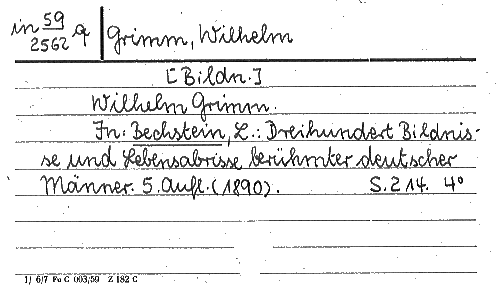 in 59/2562 q Grimm, Wilhelm
[Bildn.]
Wilhelm Grimm.
In: Bechstein, L.: Dreihundert Bildnis-
se und Lebensabrisse berühmter deutscher
Männer. 5. Aufl. (1890). S. 214. 4°
1/ 6/7 Fo C 003/59 Z 182 C